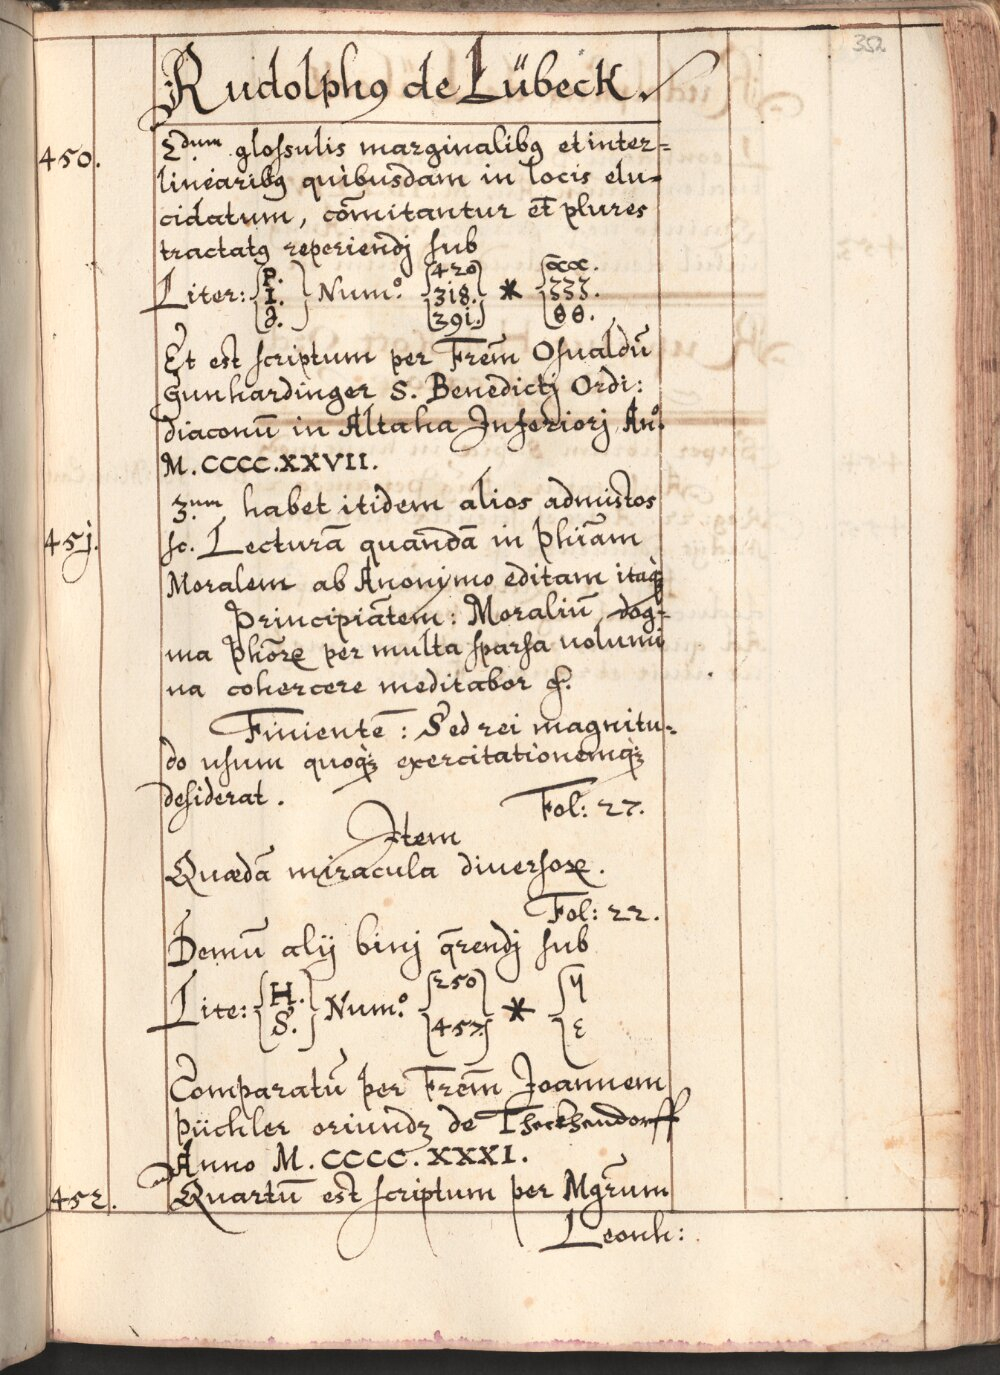 352
Rudolphꝰ de Lübeck.
450. 2dum glossulis marginalibꝰ et inter=
linearibꝰ quibusdam in locis elu=
cidatum, com̄itantur et plures
tractatꝰ reperiendj sub
Liter: { P. I. d. } Num.º { 420 318. 391. } * { αα. 333. θθ. }
Et est scriptum per Frēm Osualdū
Gunhardinger S. Benedictj Ordi:
diaconū in Altaha Inferiorj Anº.
M.CCCC.XXVII.
451. 3.um habet itidem alios admistos
sc. Lecturā quandā in Phīam
Moralem ab Anonymo editam itaqꝫ
Principiātem: Moraliū dog=
ma Phōrꝝ per multa sparsa volumi
na cohercere meditabor &.
Finientē: Sed rei magnitu=
do usum quoqꝫ exercitationemqꝫ
desiderat. Fol: 27.
Item
Quædā miracula diuersorꝝ.
Fol: 22.
Demū alij binj q̄rendj sub
Lite: { H. S. } Num.º { 250 457. } * { y ε
Comparatū per Frēm Joannem
Püchler oriundꝫ de Theckhendorff
Anno M.CCCC.XXXI.
452. Quartū est scriptum per Mgr̄um
Leonh: